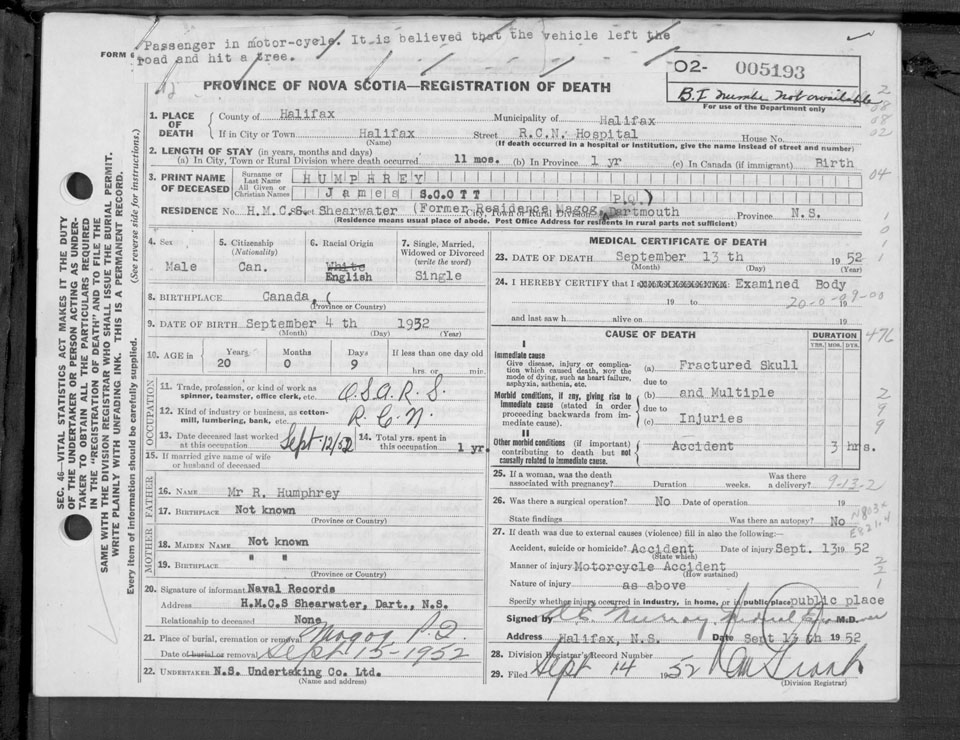 Passenger in motor-cycle. It is believed that the vehicle left the
road and hit a tree.
FORM 6
02- 005193
B.I number not available
For use of the Department only
PROVINCE OF NOVA SCOTIA—REGISTRATION OF DEATH
1. PLACE OF DEATH County of Halifax Municipality of Halifax
If in City or Town Halifax (Name) Street R.C.N. Hospital House No.
(If death occurred in a hospital or institution, give the name instead of street and number)
2. LENGTH OF STAY (in years, months and days)
(a) In City, Town or Rural Division where death occurred 11 mos. (b) In Province 1 yr (c) In Canada (if immigrant) Birth
3. PRINT NAME OF DECEASED Surname or Last Name HUMPHREY
All Given or Christian Names James SCOTT
RESIDENCE No. H.M.C.S. Shearwater (Former Residence Magog, P.Q.) City, Town or Rural Division Dartmouth Province N.S.
(Residence means usual place of abode. Post Office Address for residents in rural parts not sufficient)
4. Sex Male
5. Citizenship (Nationality) Can.
6. Racial Origin White English
7. Single, Married, Widowed or Divorced (write the word) Single
8. BIRTHPLACE Canada, (
(Province or Country)
9. DATE OF BIRTH September 4 th 1932
(Month) (Day) (Year)
10. AGE in Years 20 Months 0 Days 9 If less than one day old hrs. or min.
OCCUPATION
11. Trade, profession, or kind of work as spinner, teamster, office clerk, etc. O.S.A.R.S.
12. Kind of industry or business, as cotton-mill, lumbering, bank, etc. R.C.N.
13. Date deceased last worked at this occupation Sept-12/52 14. Total yrs. spent in this occupation 1 yr.
15. If married give name of wife or husband of deceased
FATHER
16. NAME Mr R. Humphrey
17. BIRTHPLACE Not known
(Province or Country)
MOTHER
18. MAIDEN NAME Not known
19. BIRTHPLACE " "
(Province or Country)
20. Signature of informant Naval Records
Address H.M.C.S Shearwater, Dart., N.S.
Relationship to deceased None
21. Place of burial, cremation or removal Magog P.Q.
Date of burial or removal Sept 15-1952
22. UNDERTAKER N.S. Undertaking Co. Ltd.
(Name and address)
MEDICAL CERTIFICATE OF DEATH
23. DATE OF DEATH September 13 th 1952
(Month) (Day) (Year)
24. I HEREBY CERTIFY that I Examined Body
19 to 19
20-0-09-00
and last saw h alive on 19
CAUSE OF DEATH DURATION
YRS. MOS. DYS.
476
I
Immediate cause
Give disease, injury or complication which caused death, NOT the mode of dying, such as heart failure, asphyxia, asthenia, etc.
(a) Fractured Skull
due to
Morbid conditions, if any, giving rise to immediate cause (stated in order proceeding backwards from immediate cause).
(b) and Multiple
due to
(c) Injuries
II
Other morbid conditions (if important) contributing to death but not causally related to immediate cause.
Accident 3 hrs.
25. If a woman, was the death associated with pregnancy? Duration weeks. Was there a delivery? 9-13-2
26. Was there a surgical operation? No Date of operation 19
State findings Was there an autopsy? No
N803
E821.4
27. If death was due to external causes (violence) fill in also the following:—
Accident, suicide or homicide? Accident Date of injury Sept. 13 19 52
(State which)
Manner of injury Motorcycle Accident
(How sustained)
Nature of injury as above
Specify whether injury occurred in industry, in home, or in public place public place
Signed by Murray Medical Examiner M.D.
Address Halifax, N.S. Date Sept 13 th 1952
28. Division Registrar's Record Number
29. Filed Sept 14 1952
(Division Registrar)
SEC. 46—VITAL STATISTICS ACT MAKES IT THE DUTY
OF THE UNDERTAKER OR PERSON ACTING AS UNDER-
TAKER TO OBTAIN ALL THE PARTICULARS REQUIRED
IN THE "REGISTRATION OF DEATH" AND TO FILE THE
SAME WITH THE DIVISION REGISTRAR WHO SHALL ISSUE THE BURIAL PERMIT.
WRITE PLAINLY WITH UNFADING INK. THIS IS A PERMANENT RECORD.
Every item of information should be carefully supplied. (See reverse side for instructions.)